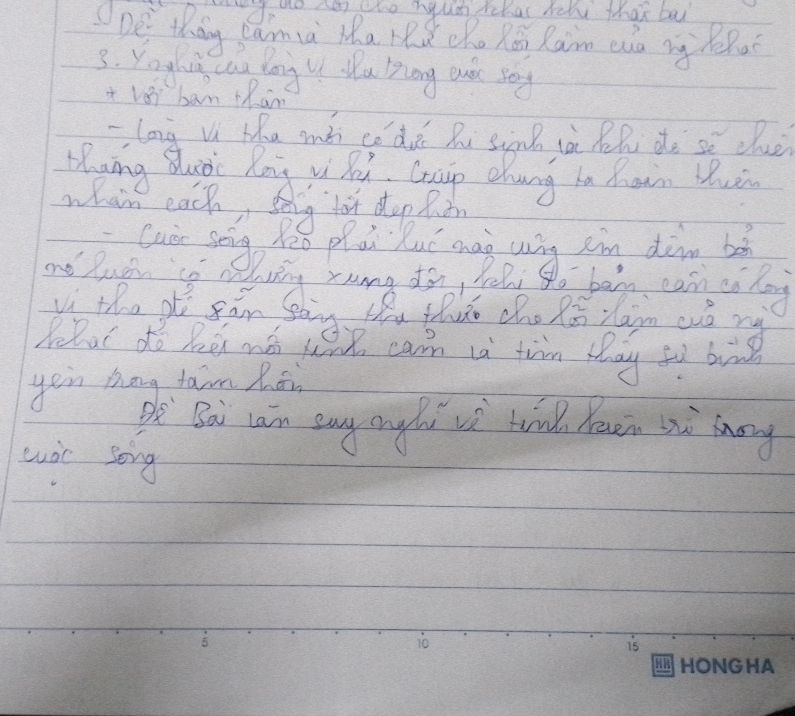 cho người khác khi thất bại
Dễ thông cảm và tha thứ cho lỗi lầm của ng khác
3. Ý nghĩa của lòng vị tha trong cuộc sống
+ với bản thân
- lòng vị tha mới có đức hi sinh và khi đó sẽ chiến
thắng được lòng vị kỉ. Giúp chúng ta hoàn thiện
nhân cách, sống tốt đẹp hơn
- Cuộc sống ko phải lúc nào cũng êm đềm bởi
nó luôn có những xung đột, khi đó bạn cần có lòng
vị tha để sẵn sàng tha thứ cho lỗi lầm của ng
khác để kết nối tình cảm và tìm thấy sự bình
yên trong tâm hồn
Đề Bài văn suy nghĩ về tính kiên trì trong
cuộc sống
5 10 15
HH HONG HA